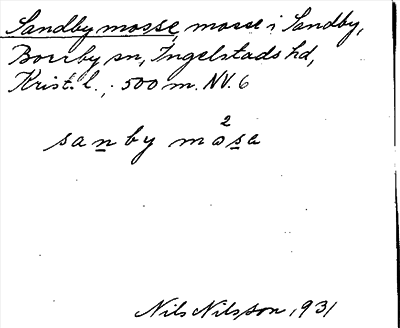 Sandby mosse, mosse i Sandby,
Borrby sn, Ingelstads hd,
Krist. l., 500 m. NV. 6
sanby mo²sa
Nils Nilsson, 1931